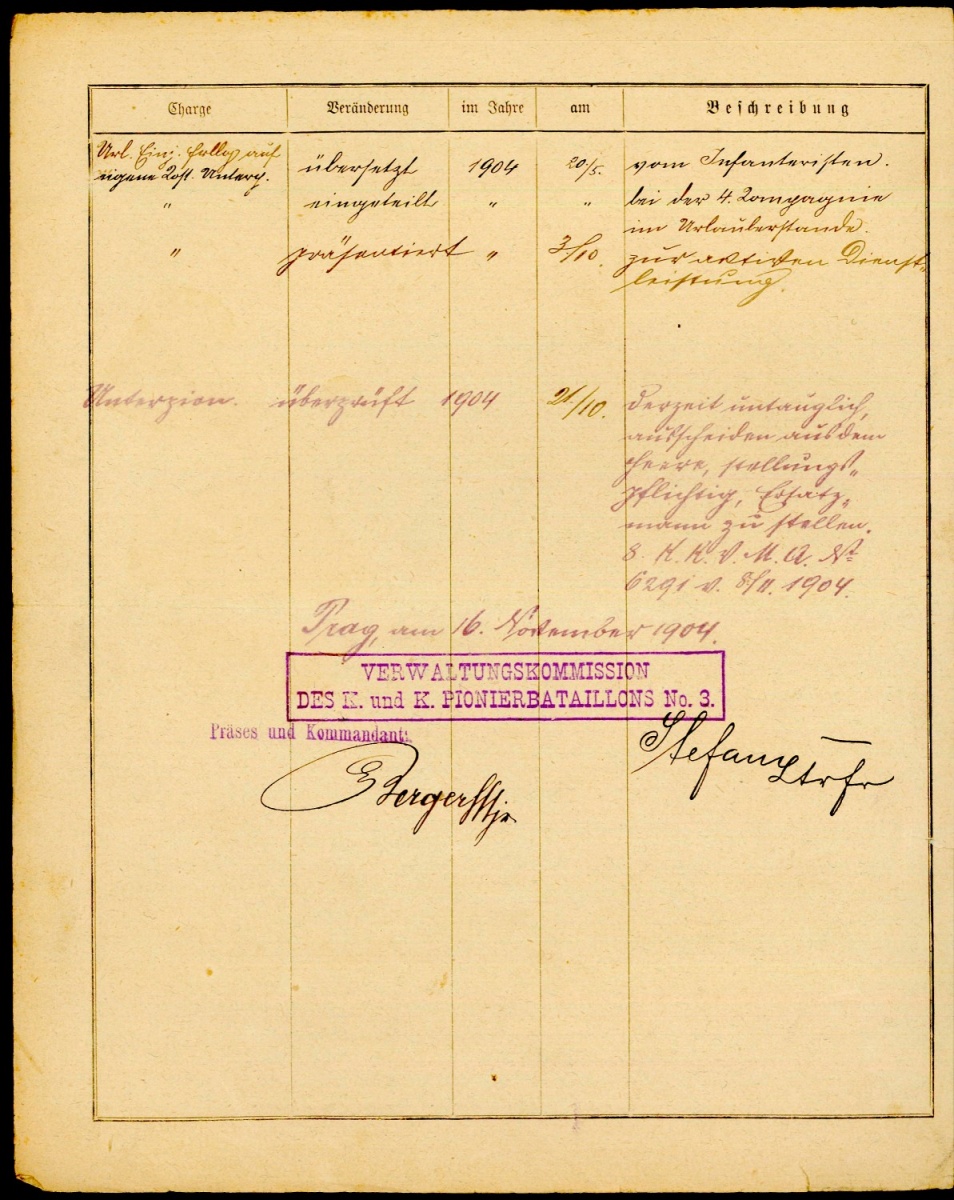 Charge Veränderung im Jahre am Beschreibung
Url. Einj. auf
eigene Kost. übersetzt 1904 20/5. vom Infanteristen.
" eingeteilt " " bei der 4. Kompagnie
im Urlauberstande.
" präsentiert " 3/10. zur aktiven Dienst-
leistung.
Unterpion. überprüft 1904 21/10. derzeit untauglich,
ausscheiden aus dem
Heere, stellungs-
pflichtig, Ersatz-
mann zu stellen.
8. K. K. V. M. A. Nr
6291 v. 8/11. 1904.
Prag, am 16. November 1904.
VERWALTUNGSKOMMISSION
DES K. und K. PIONIERBATAILLONS No. 3.
Präses und Kommandant:
Berger